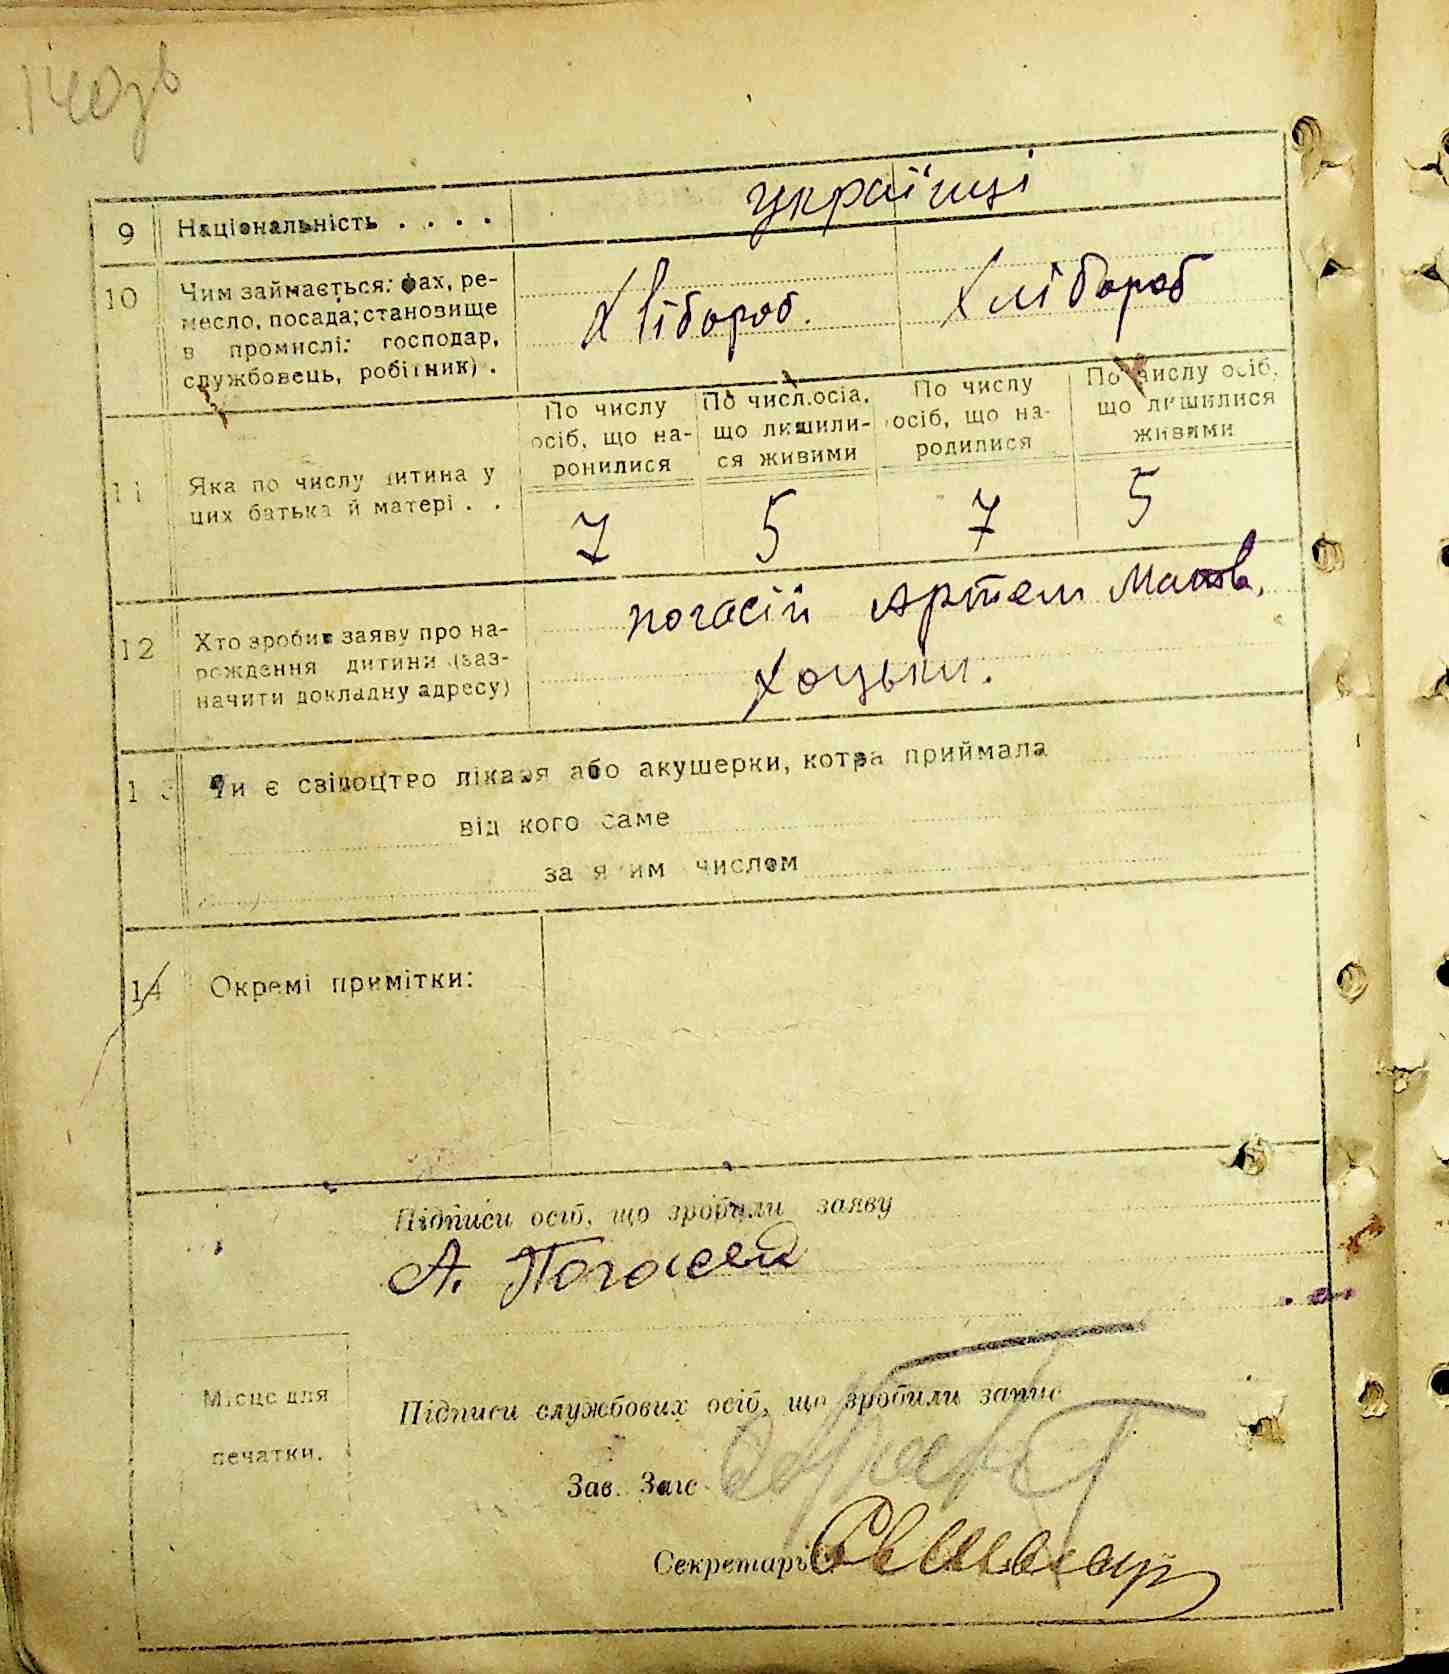 140зв
9 Національність . . . . українці
10 Чим займається: фах, ре-
месло, посада; становище
в промислі: господар,
службовець, робітник) .
Хлібороб. Хлібороб
11 Яка по числу дитина у
цих батька й матері . .
По числу
осіб, що на-
ронилися
По числ.осіа,
що лишили-
ся живими
По числу
осіб, що на-
родилися
По числу осіб,
що лишилися
живими
7 5 7 5
12 Хто зробив заяву про на-
рождення дитини (заз-
начити докладну адресу)
погосій Артем
Хоцьки.
13 Чи є свідоцтво лікаря або акушерки, котра приймала
від кого саме
за яким числом
14 Окремі примітки:
Підписи осіб, що зробили заяву
А. Погосей
Місце для
печатки.
Підписи службових осіб, що зробили запис
Зав. Загс
Секретарь